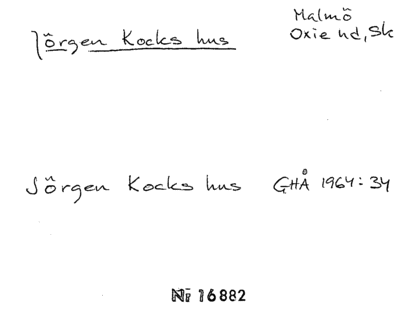 Jörgen Kocks hus
Malmö
Oxie hd, Sk
Jörgen Kocks hus GHÅ 1964:34
Nr 16882